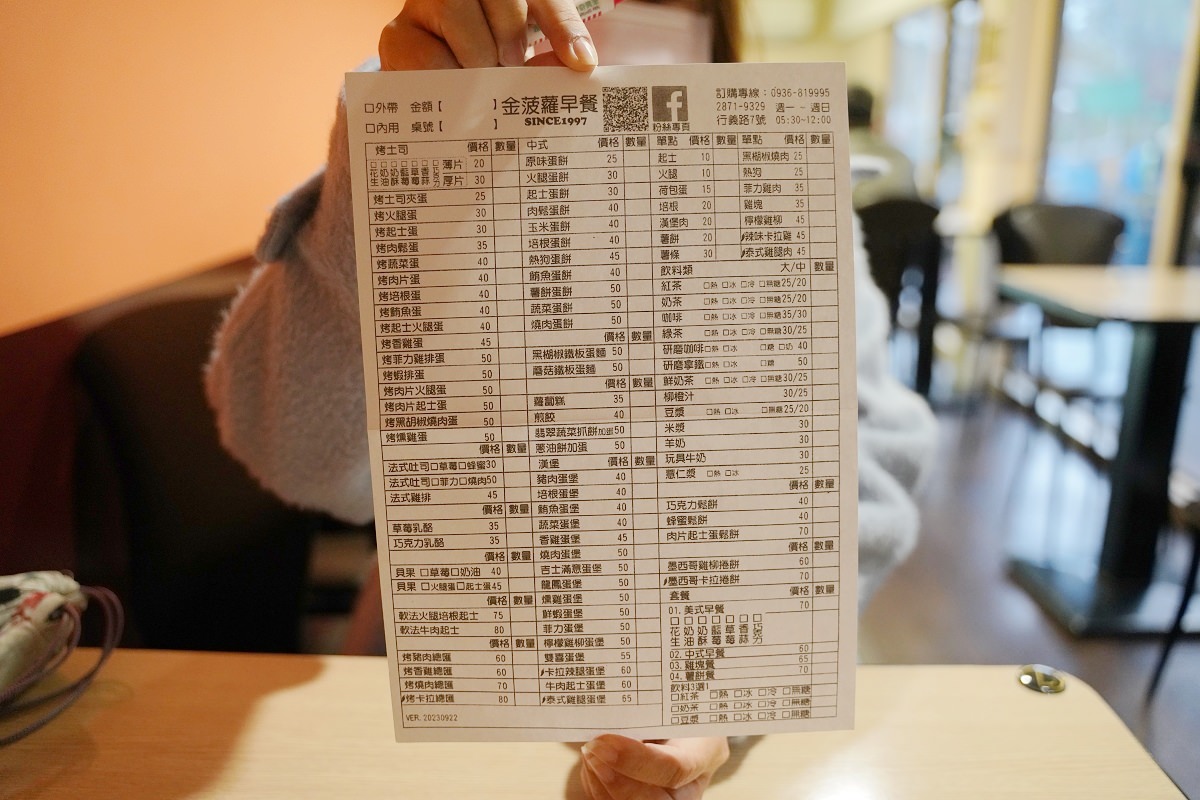 口外帶 金額【 】
口內用 桌號【 】
金菠蘿早餐
SINCE1997
粉絲專頁
訂購專線：0936-819995
2871-9329 週一 ~ 週日
行義路7號 05:30~12:00
烤土司 價格 數量
花生 奶油 奶酥 藍莓 草莓 香蒜 巧克力
薄片 20
厚片 30
烤土司夾蛋 25
烤火腿蛋 30
烤起士蛋 30
烤肉鬆蛋 35
烤蔬菜蛋 40
烤肉片蛋 40
烤培根蛋 40
烤鮪魚蛋 40
烤起士火腿蛋 40
烤香雞蛋 45
烤菲力雞排蛋 50
烤蝦排蛋 50
烤肉片火腿蛋 50
烤肉片起士蛋 50
烤黑胡椒燒肉蛋 50
烤燻雞蛋 50
價格 數量
法式吐司口草莓口蜂蜜30
法式吐司口菲力口燒肉50
法式雞排 45
價格 數量
草莓乳酪 35
巧克力乳酪 35
價格 數量
貝果 口草莓口奶油 40
貝果 口火腿蛋口起士蛋45
價格 數量
軟法火腿培根起士 75
軟法牛肉起士 80
價格 數量
烤豬肉總匯 60
烤香雞總匯 60
烤燒肉總匯 70
烤卡拉總匯 80
VER. 20230922
中式 價格 數量
原味蛋餅 25
火腿蛋餅 30
起士蛋餅 30
肉鬆蛋餅 40
玉米蛋餅 40
培根蛋餅 40
熱狗蛋餅 45
鮪魚蛋餅 50
薯餅蛋餅 50
蔬菜蛋餅 50
燒肉蛋餅 50
價格 數量
黑胡椒鐵板蛋麵 50
蘑菇鐵板蛋麵 50
價格 數量
蘿蔔糕 35
煎餃 40
翡翠蔬菜抓餅加蛋50
蔥油餅加蛋 50
漢堡 價格 數量
豬肉蛋堡 40
培根蛋堡 40
鮪魚蛋堡 40
蔬菜蛋堡 40
香雞蛋堡 45
燒肉蛋堡 50
吉士滿意蛋堡 50
龍鳳蛋堡 50
燻雞蛋堡 50
鮮蝦蛋堡 50
菲力蛋堡 50
檸檬雞柳蛋堡 50
雙喜蛋堡 55
卡拉辣腿蛋堡 60
牛肉起士蛋堡 60
泰式雞腿蛋堡 65
單點 價格 數量
起士 10
火腿 10
荷包蛋 15
培根 20
漢堡肉 20
薯餅 20
薯條 30
單點 價格 數量
黑楜椒燒肉 25
熱狗 25
菲力雞肉 35
雞塊 35
檸檬雞柳 45
辣味卡拉雞 45
泰式雞腿肉 45
飲料類 大/中 數量
紅茶 口熱 口冰 口冷 口無糖25/20
奶茶 口熱 口冰 口冷 口無糖25/20
咖啡 口熱 口冰 口冷 口無糖35/30
綠茶 口熱 口冰 口冷 口無糖30/25
研磨咖啡口熱 口冰 口糖 口奶 40
研磨拿鐵口熱 口冰 口糖 50
鮮奶茶 口熱 口冰 口冷 口無糖30/25
柳橙汁 30/25
豆漿 口熱 口冰 口無糖25/20
米漿 30
羊奶 30
玩具牛奶 30
薏仁漿 口熱 口冰 25
價格 數量
巧克力鬆餅 40
蜂蜜鬆餅 40
肉片起士蛋鬆餅 70
價格 數量
墨西哥雞柳捲餅 60
墨西哥卡拉捲餅 70
套餐 價格 數量
01. 美式早餐 70
花生 奶油 奶酥 藍莓 草莓 香蒜 巧克力
02. 中式早餐 60
03. 雞塊餐 65
04. 薯餅餐 70
飲料3選1
口紅茶 口熱 口冰 口冷 口無糖
口奶茶 口熱 口冰 口冷 口無糖
口豆漿 口熱 口冰 口冷 口無糖